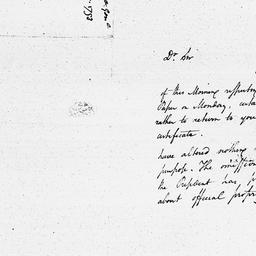 1782
Dr. Sir
of this Morning respecting
Paper on Monday, certa
rather to return to you
certificate.
have altered nothing
purpose. The omission
the President has, fr
about official propr